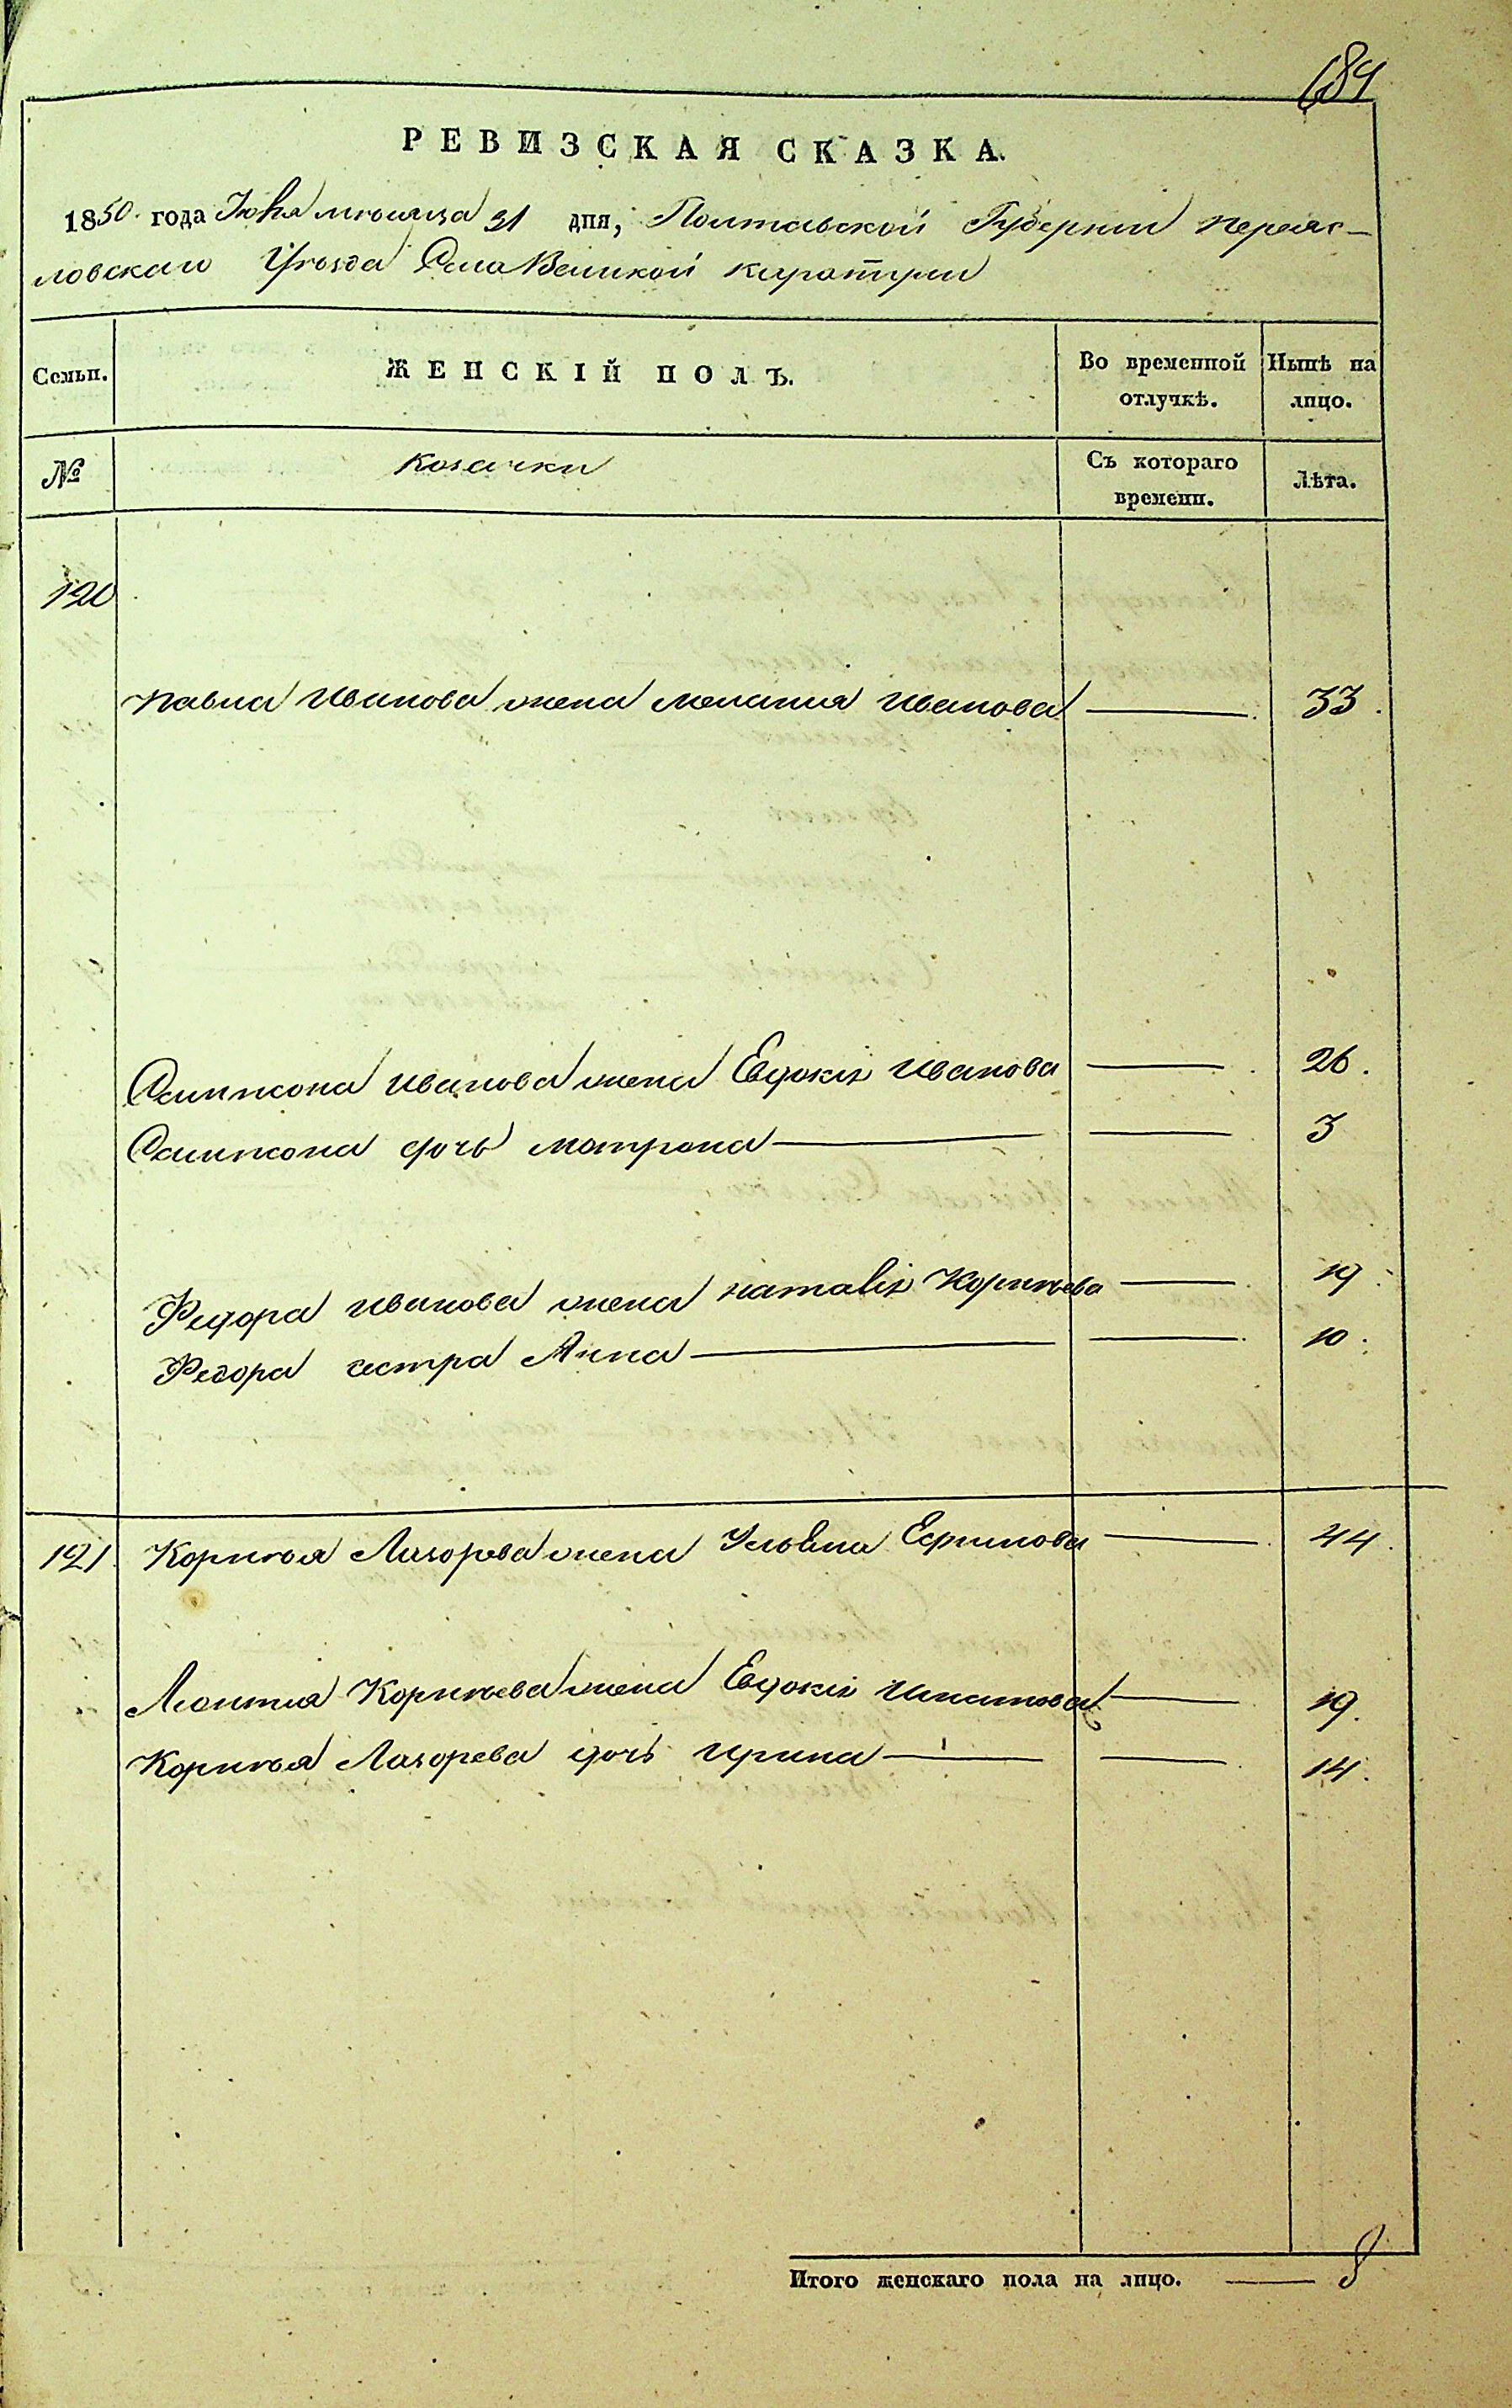 684
РЕВИЗСКАЯ СКАЗКА.
1850 года Июля месяца 31 дня, Полтавской Губернии Переяс-
ловскаго Уезда Села Великой Каратули
Семьи. ЖЕНСКІЙ ПОЛЪ. Во временной отлучкѣ. Нынѣ на лицо.
№ Козачки Съ котораго времени. Лѣта.
120
Павла Иванова жена Мелания Иванова — 33.
Сампсона Иванова жена Евдокія Иванова — 26.
Сампсона дочь Матрона — — 3
Федора Иванова жена Наталія Корнѣева — 19.
Федора сестра Анна — — 10.
121. Корнѣя Лазорева жена Ульяна Ефимова — 44.
Леонтия Корнѣева жена Евдокія Игнатова — 19.
Корнѣя Лазорева дочь Ирина — — 14.
Итого женскаго пола на лицо. — 8